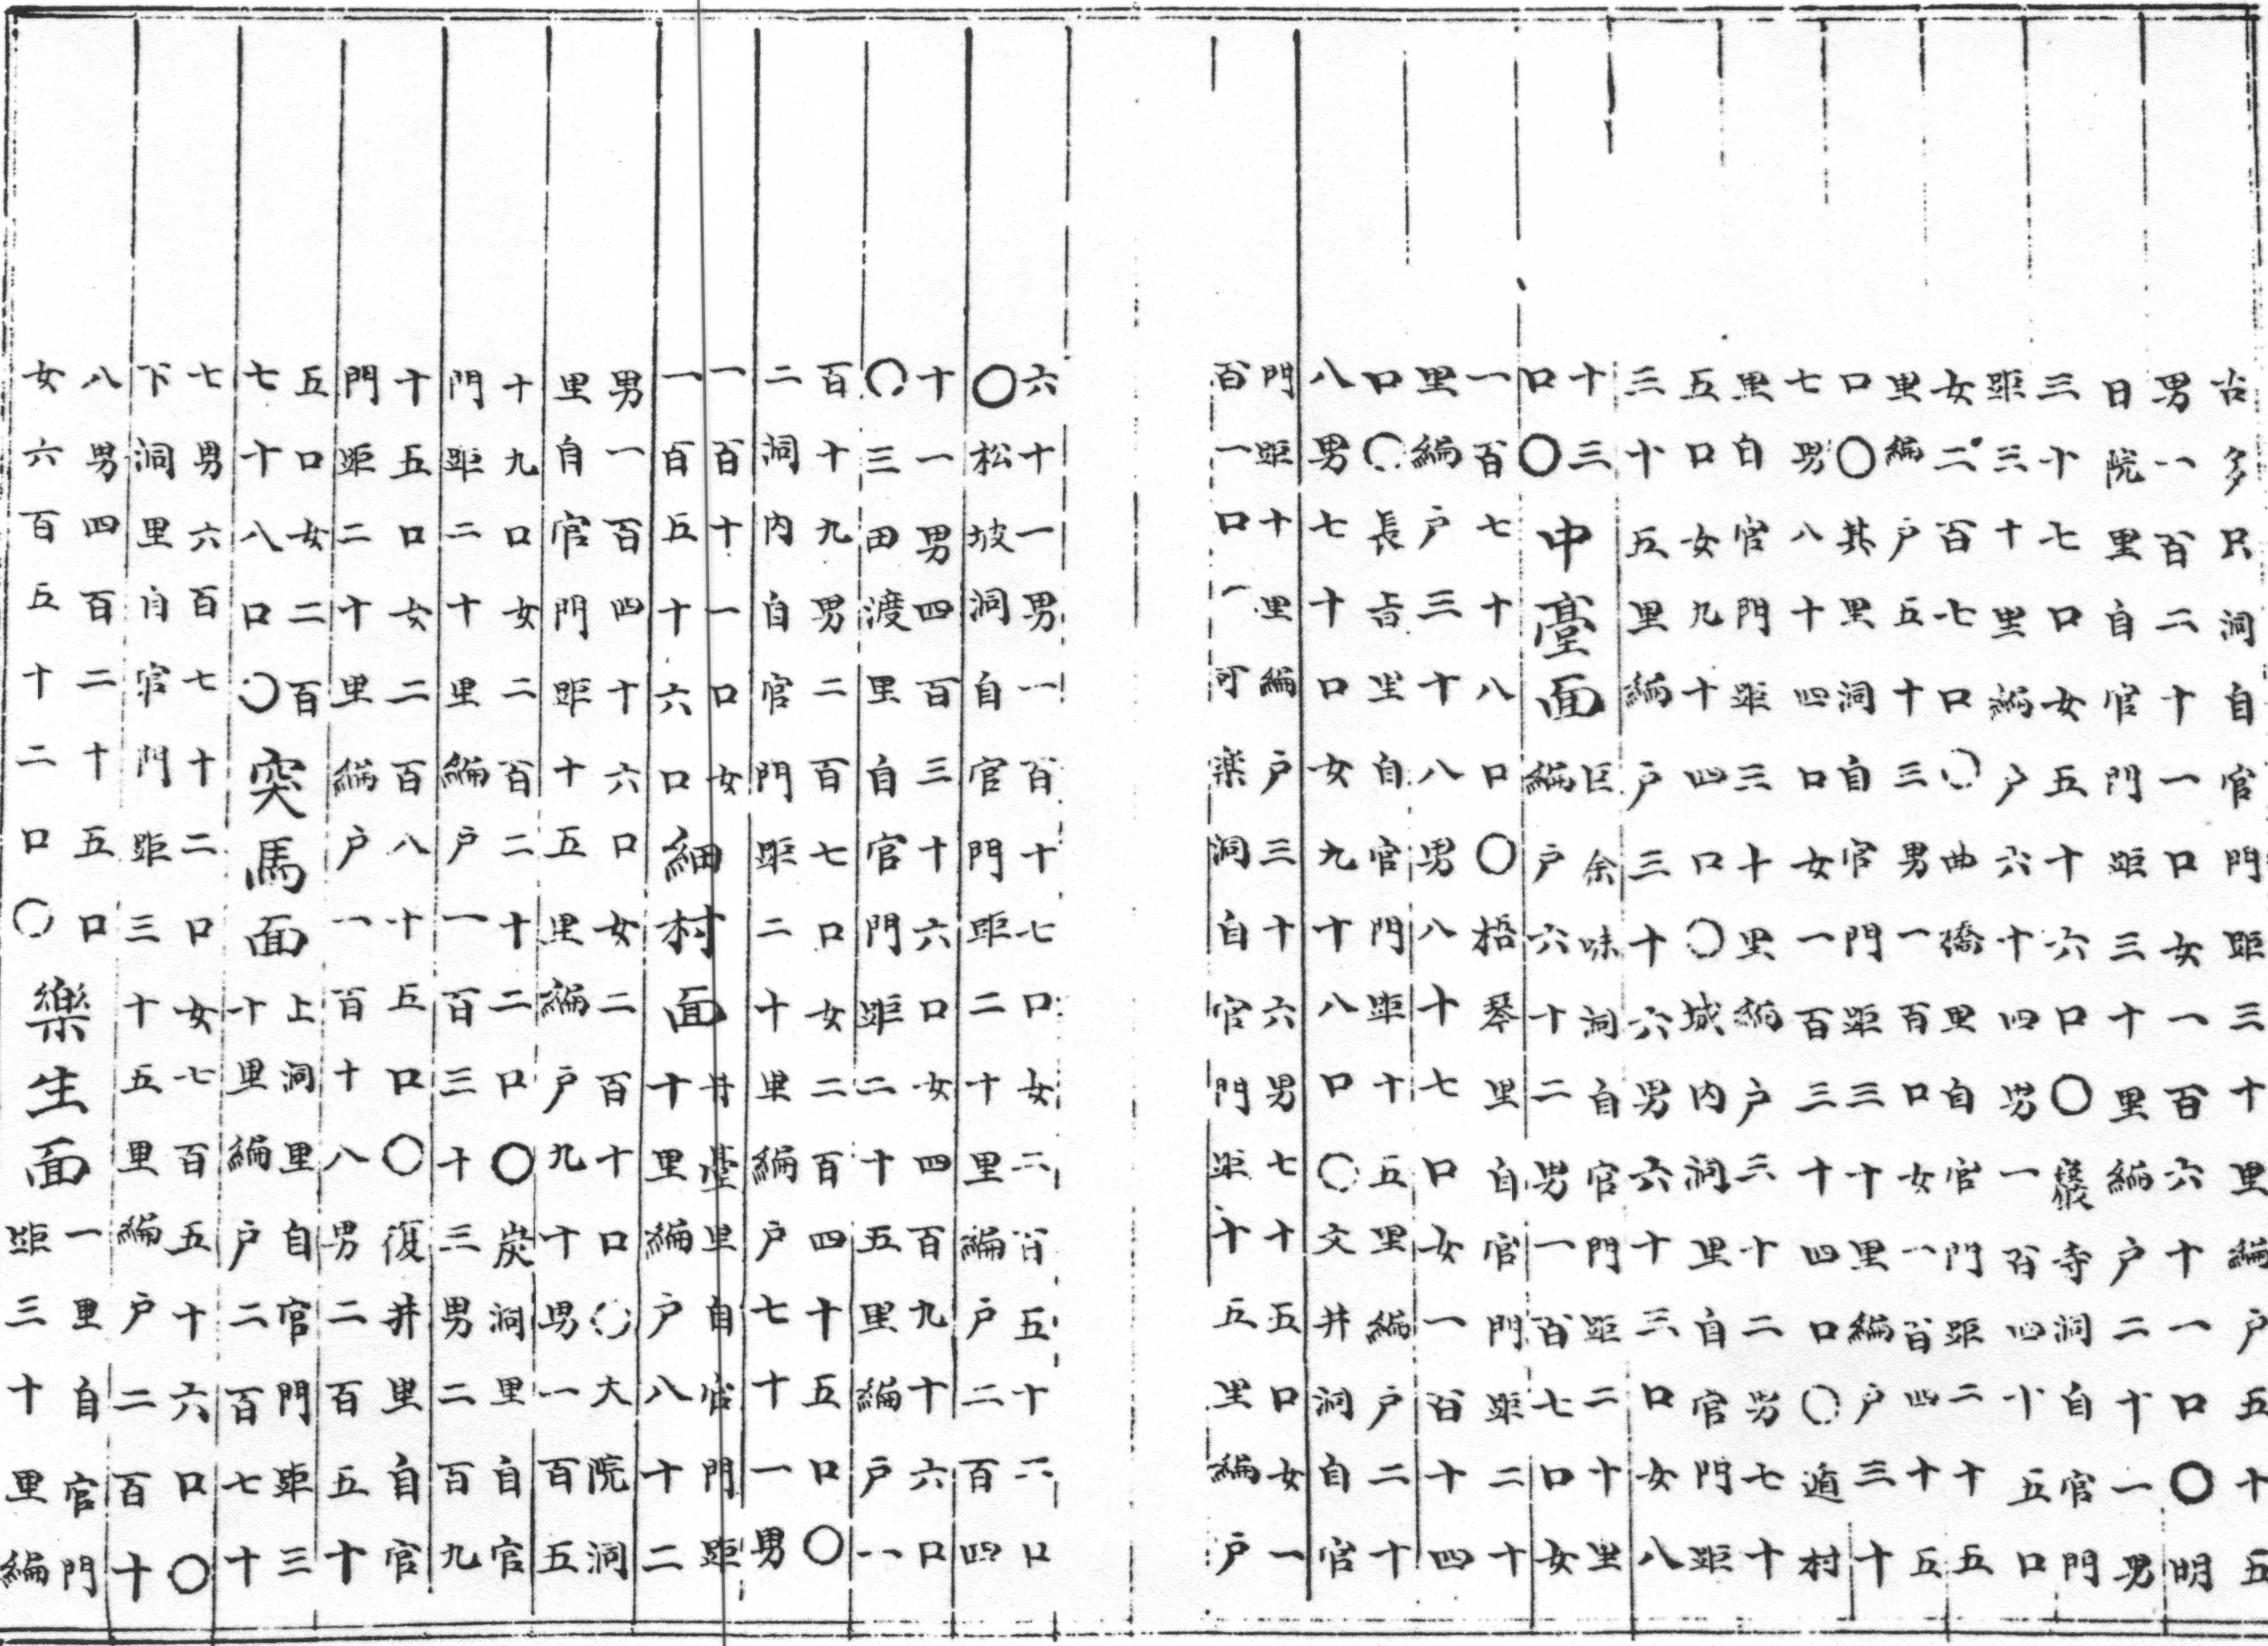 古多只洞自官門距三十里編戶五十五
男一百二十一口女一百六十一口〇明
日院里自官門距三十里編戶二十一男
三十七口女五十六口〇巖寺洞自官門
距三十里編戶六十四男一百四十五口
女二百七口〇曲橋里自官門距二十五
里編戶五十三男一百口女一百四十五
口〇其里洞自官門距三十里編戶三十
七男八十四口女一百三十四口〇遁村
里自官門距三十里編戶三十二男七十
五口女九十四口〇城內洞里自官門距
三十五里編戶三十六男六十三口女八
十三
口〇
中臺面
巨余味洞自官門距二十里
編戶六十二男一百七口女
一百七十八口〇梧琴里自官門距二十
里編戶三十八男八十七口女一百十四
口〇長旨里自官門距十五里編戶二十
八男七十口女九十八口〇文井洞自官
門距十里編戶三十六男七十五口女一
百一口〇可樂洞自官門距十五里編戶
六十一男一百十七口女二百五十二口
〇松坡洞自官門距二十里編戶二百四
十一男四百三十六口女四百九十六口
〇三田渡里自官門距二十五里編戶一
百十九男二百七口女二百四十五口〇
二洞內自官門距二十里編戶七十一男
一百十一口女
一百五十六口
細村面
井臺里自官門距
十里編戶八十二
男一百四十六口女二百十口〇大院洞
里自官門距十五里編戶九十男一百五
十九口女二百二十二口〇炭洞里自官
門距二十里編戶一百三十三男二百九
十五口女二百八十五口〇復井里自官
門距二十里編戶一百十八男二百五十
五口女二百
七十八口〇
突馬面
上洞里自官門距三
十里編戶二百七十
七男六百七十二口女七百五十六口〇
下洞里自官門距三十五里編戶二百十
八男四百二十五口
女六百五十二口〇
樂生面
一里自官門
距三十里編